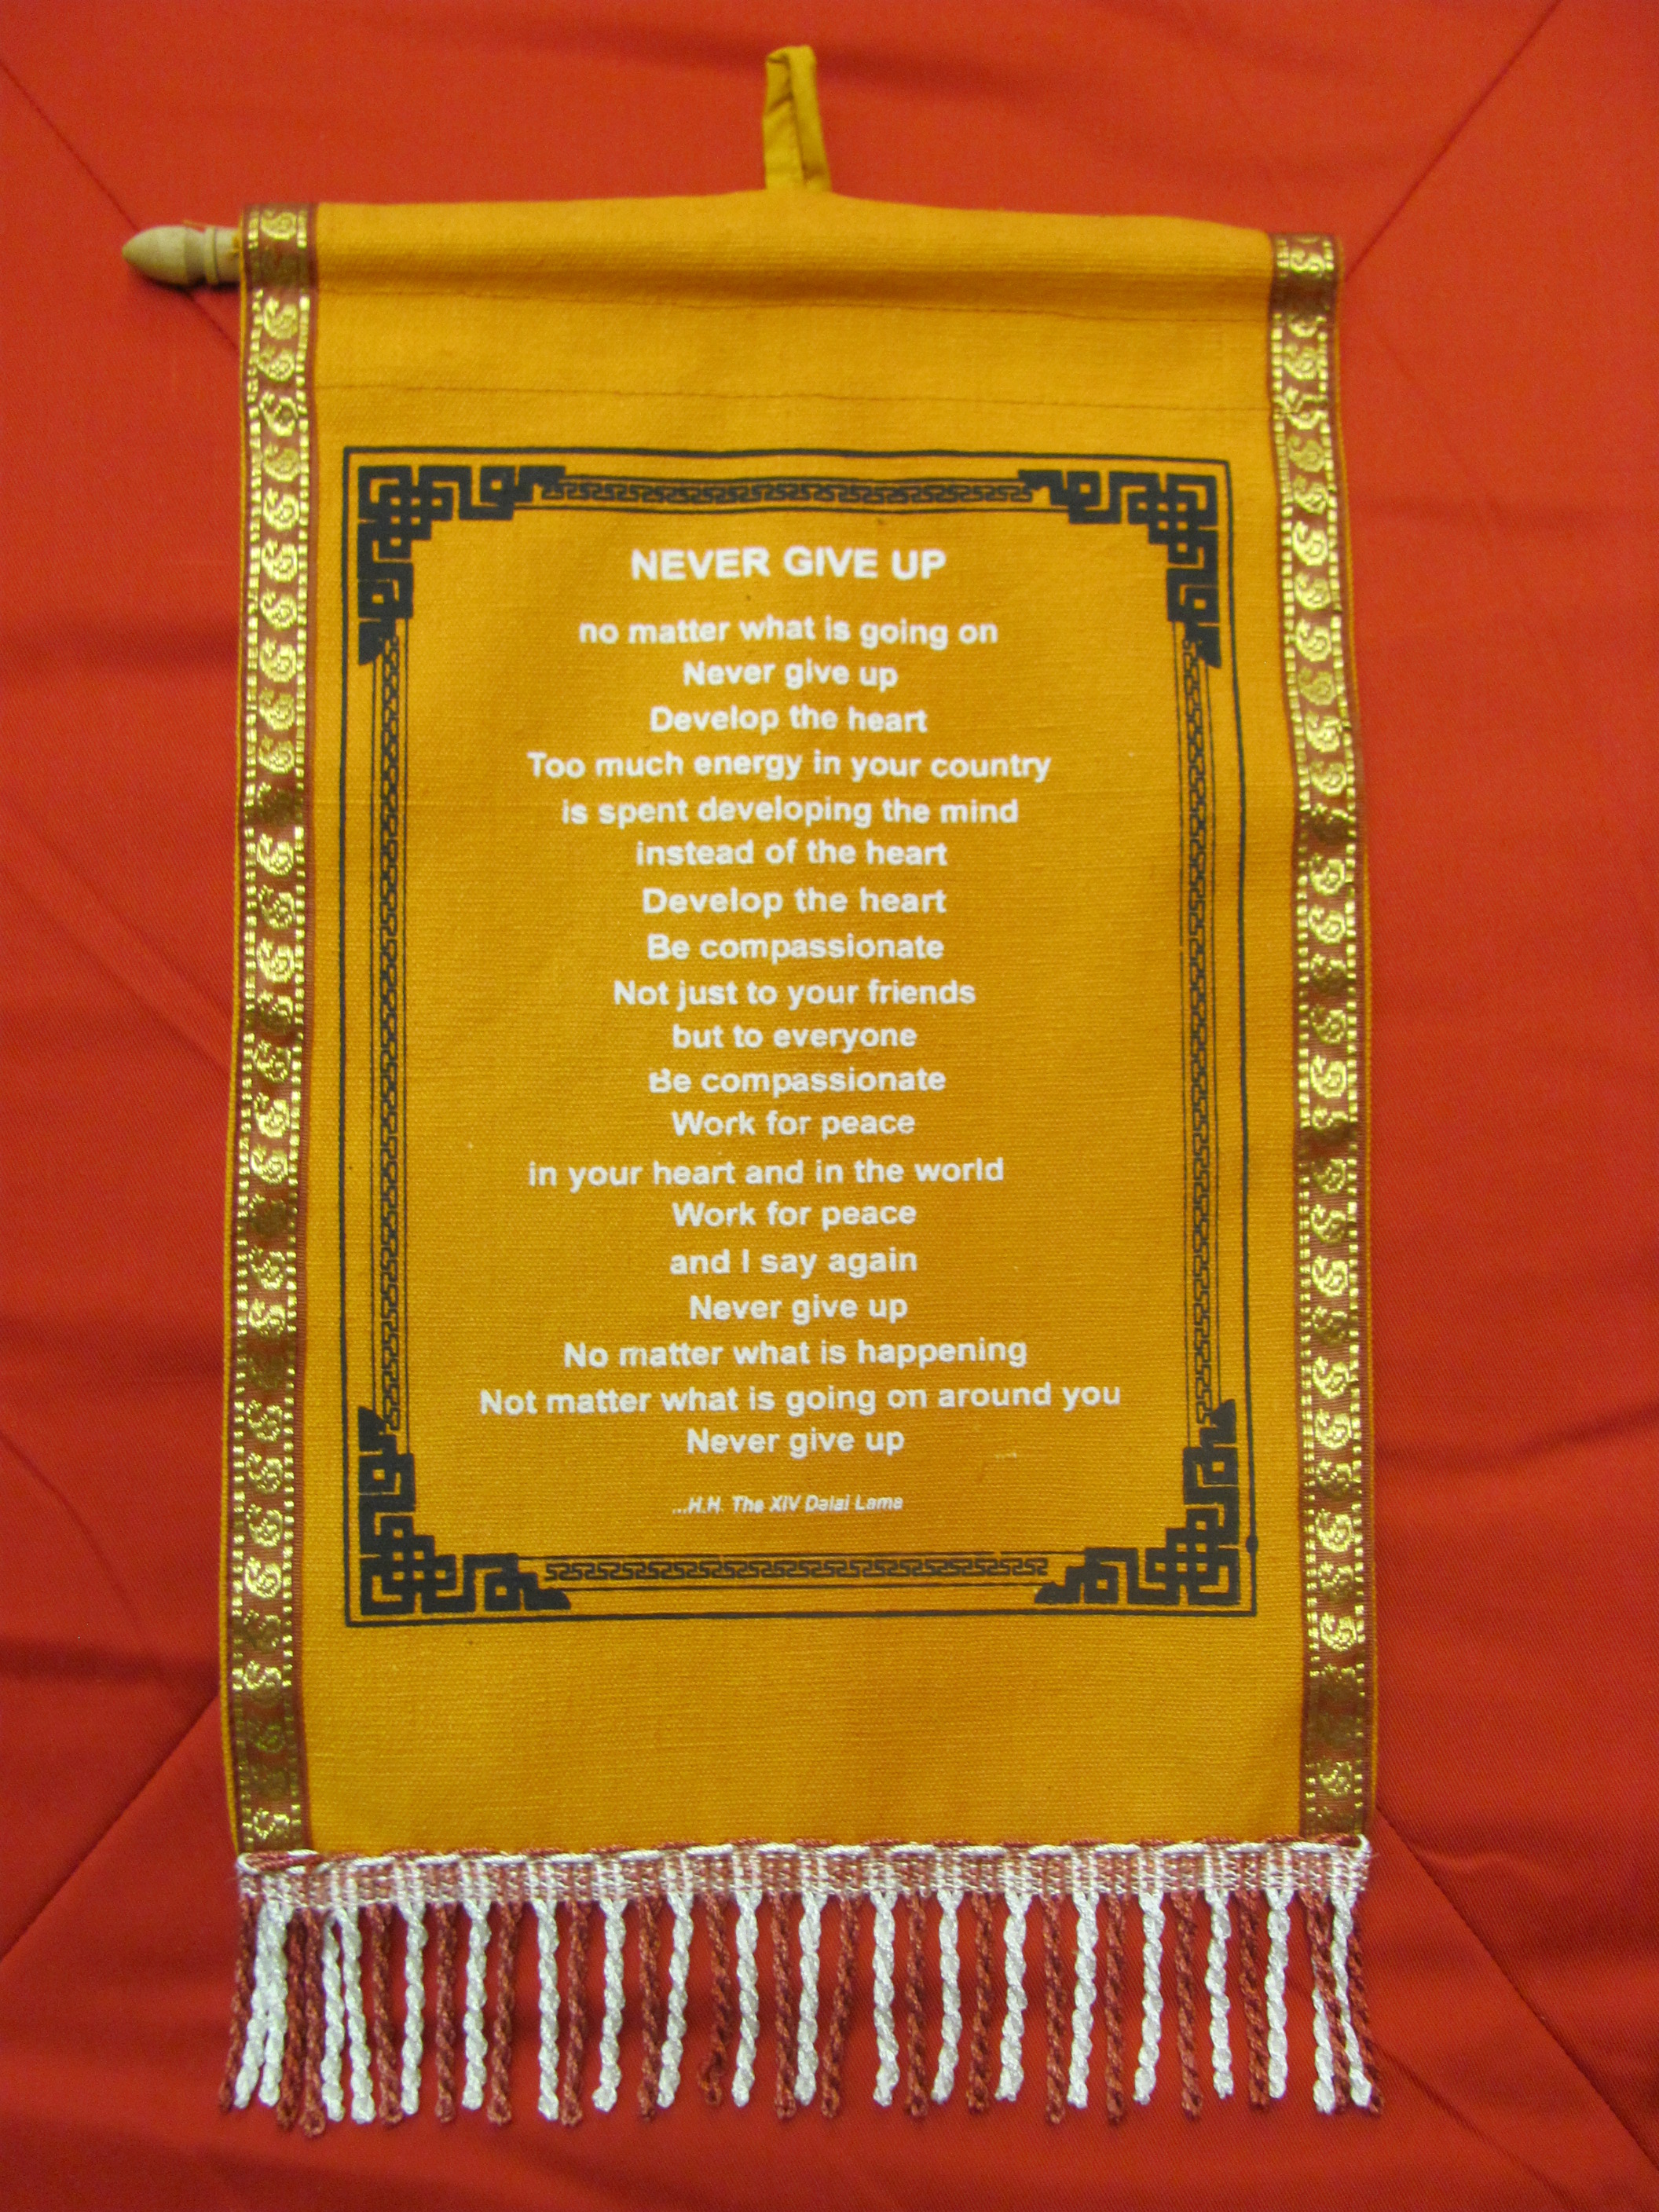 NEVER GIVE UP
no matter what is going on
Never give up
Develop the heart
Too much energy in your country
is spent developing the mind
instead of the heart
Develop the heart
Be compassionate
Not just to your friends
but to everyone
Be compassionate
Work for peace
in your heart and in the world
Work for peace
and I say again
Never give up
No matter what is happening
Not matter what is going on around you
Never give up
...H.H. The XIV Dalai Lama